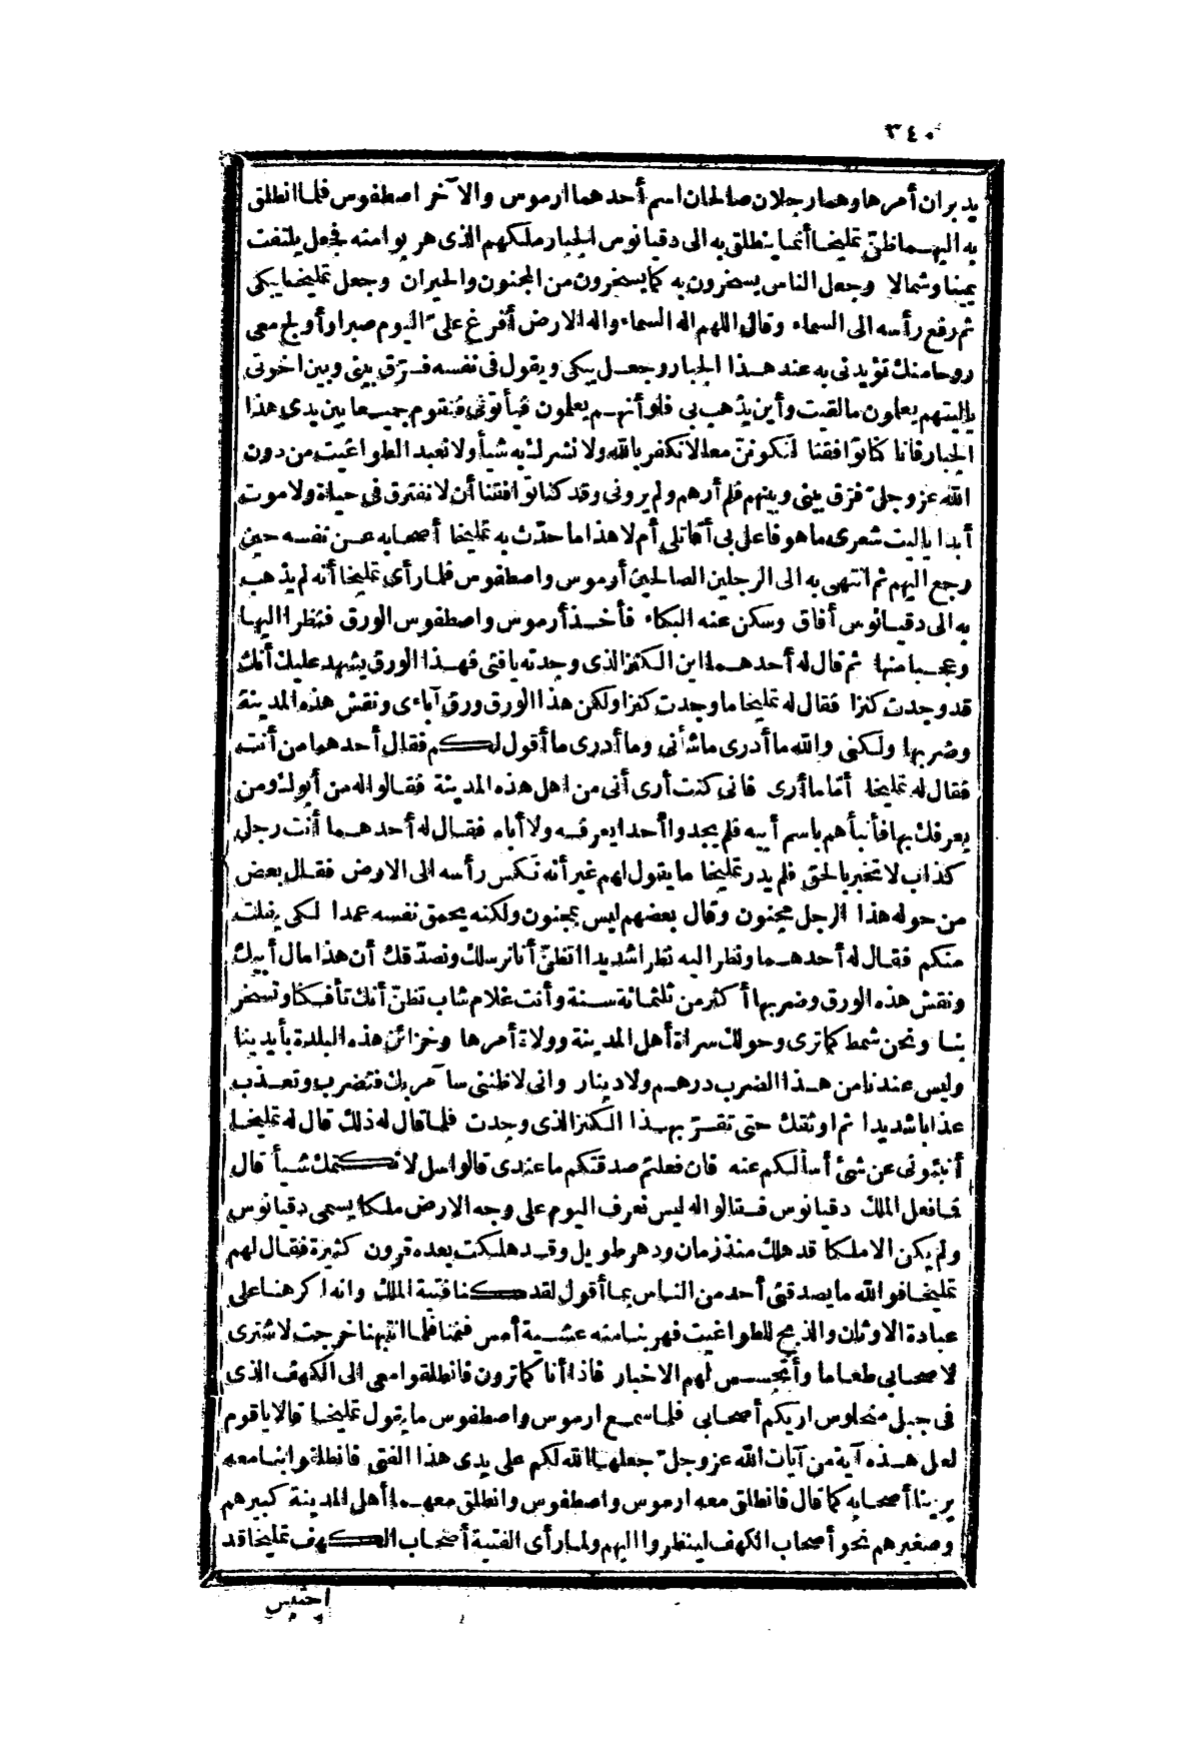 ٣٤٠
يدبران أمرها وهما رجلان صالحان اسم أحدهما ارموس والآخر اصطفوس فلما انطلق
به اليهما ظنّ تمليخا أنما ينطلق به الى دقيانوس الجبار ملكهم الذى هربوا منه فجعل يلتفت
يمينا وشمالا وجعل الناس يسخرون به كما يسخرون من المجنون والحيران وجعل تمليخا يبكى
ثم رفع رأسه الى السماء وقال اللهم اله السماء واله الارض أفرغ علىّ اليوم صبرا وأولج معى
روحا منك تؤيدنى به عند هذا الجبار وجعل يبكى ويقول فى نفسه فرّق بينى وبين اخوتى
ياليتهم يعلمون ما لقيت وأين يذهب بى فلو أنهم يعلمون فيأتونى فنقوم جميعا بين يدى هذا
الجبار فانا كنا توافقنا لنكوننّ معا لا نكفر بالله ولا نشرك به شيأ ولا نعبد الطواغيت من دون
الله عز وجلّ فرّق بينى وبينهم فلم أرهم ولم يرونى وقد كنا توافقنا أن لا نفترق فى حياة ولا موت
أبدا ياليت شعرى ما هو فاعل بى أقاتلى أم لا هذا ما حدّث به تمليخا أصحابه عن نفسه حين
رجع اليهم ثم انتهى به الى الرجلين الصالحين أرموس واصطفوس فلما رأى تمليخا أنه لم يذهب
به الى دقيانوس أفاق وسكن عنه البكاء فأخذ أرموس واصطفوس الورق فنظرا اليها
وعجبا منها ثم قال له أحدهما اين الكنز الذى وجدته يافتى فهذا الورق يشهد عليك أنك
قد وجدت كنزا فقال له تمليخا ما وجدت كنزا ولكن هذا الورق ورق آباءى ونقش هذه المدينة
وضربها ولكنى والله ما أدرى ما شأنى وما أدرى ما أقول لكم فقال أحدهما من أنت
فقال له تمليخا أمّا ما أرى فانى كنت أرى أنى من اهل هذه المدينة فقالوا له من أبوك ومن
يعرفك بها فأنبأهم باسم أبيه فلم يجدوا أحدا يعرفه ولا أباه فقال له أحدهما أنت رجل
كذاب لا تخبر بالحق فلم يدر تمليخا ما يقول لهم غير أنه نكس رأسه الى الارض فقال بعض
من حوله هذا الرجل مجنون وقال بعضهم ليس بمجنون ولكنه يحمق نفسه عمدا لكى يفلت
منكم فقال له أحدهما ونظر اليه نظرا شديدا اتظنّ أنا نرسلك ونصدّقك أن هذا مال أبيك
ونقش هذه الورق وضربها أكثر من ثلثمائة سنة وأنت غلام شاب تظنّ أنك تأفكنا وتسخر
بنا ونحن شمط كما ترى وحولك سراة أهل المدينة وولاة أمرها وخزائن هذه البلدة بأيدينا
وليس عندنا من هذا الضرب درهم ولا دينار وانى لاظننى سآمر بك فتضرب وتعذب
عذابا شديدا ثم اوثقك حتى تقرّ بهذا الكنز الذى وجدت فلما قال له ذلك قال له تمليخا
أنبئونى عن شئ أسألكم عنه فان فعلتم صدقتكم ما عندى قالوا سل لا نكتمك شيأ قال
ما فعل الملك دقيانوس فقالوا له ليس نعرف اليوم على وجه الارض ملكا يسمى دقيانوس
ولم يكن الا ملكا قد هلك منذ زمان ودهر طويل وقد هلكت بعده قرون كثيرة فقال لهم
تمليخا فوالله ما يصدقنى أحد من الناس بما أقول لقد كنا فتية الملك وانه اكرهنا على
عبادة الاوثان والذبح للطواغيت فهربنا منه عشية أمس فنمنا فلما انتبهنا خرجت لاشترى
لاصحابى طعاما وأتجسس لهم الاخبار فاذا أنا كما ترون فانطلقوا معى الى الكهف الذى
فى جبل منحلوس اريكم أصحابى فلما سمع ارموس واصطفوس ما يقول تمليخا قالا ياقوم
لعل هذه آية من آيات الله عز وجلّ جعلها الله لكم على يدى هذا الفتى فانطلقوا بنا معه
يرينا أصحابه كما قال فانطلق معه ارموس واصطفوس وانطلق معهما أهل المدينة كبيرهم
وصغيرهم نحو أصحاب الكهف لينظروا اليهم ولما رأى الفتية أصحاب الكهف تمليخا قد
احتبس